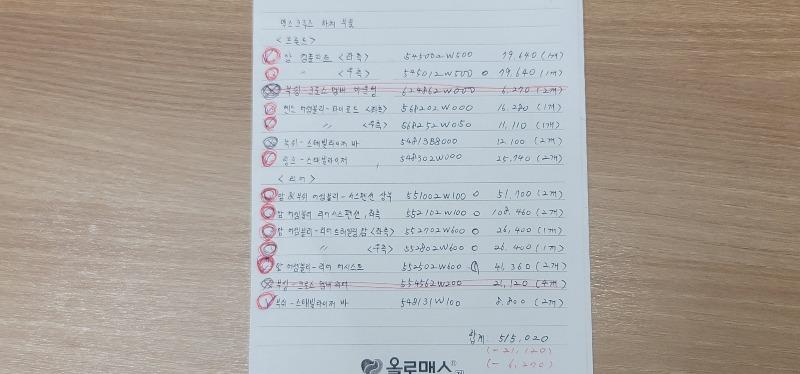 맥스크루즈 하체 부품
<프론트>
암 컴플리트 <좌측> 545002W500 79,640 (1개)
〃 <우측> 545012W500 0 79,640 (1개)
부싱-크로스멤버 마운팅 624862W000 6,270 (2개)
엔드 어셈블리-타이로드 <좌측> 568202W000 16,280 (1개)
〃 <우측> 568252W050 11,110 (1개)
부쉬-스태빌라이저 바 548138B000 12,100 (2개)
링크-스태빌라이저 548302W000 25,740 (2개)
<리어>
암 & 부쉬 어셈블리-서스펜션 상부 551002W100 0 51,700 (2개)
암 어셈블리 리어서스펜션, 좌측 552102W100 0 108,460 (2개)
암 어셈블리-리어트레일링암 <좌측> 552702W600 0 26,400 (1개)
〃 <우측> 552802W600 0 26,400 (1개)
암 어셈블리-리어 어시스트 552502W600 41,360 (2개)
부싱-크로스멤버 554562W200 21,120 (4개)
부쉬-스태빌라이저 바 548131W100 8,800 (2개)
합계 515,020
(-21,120)
(-6,270)
올로맥스®